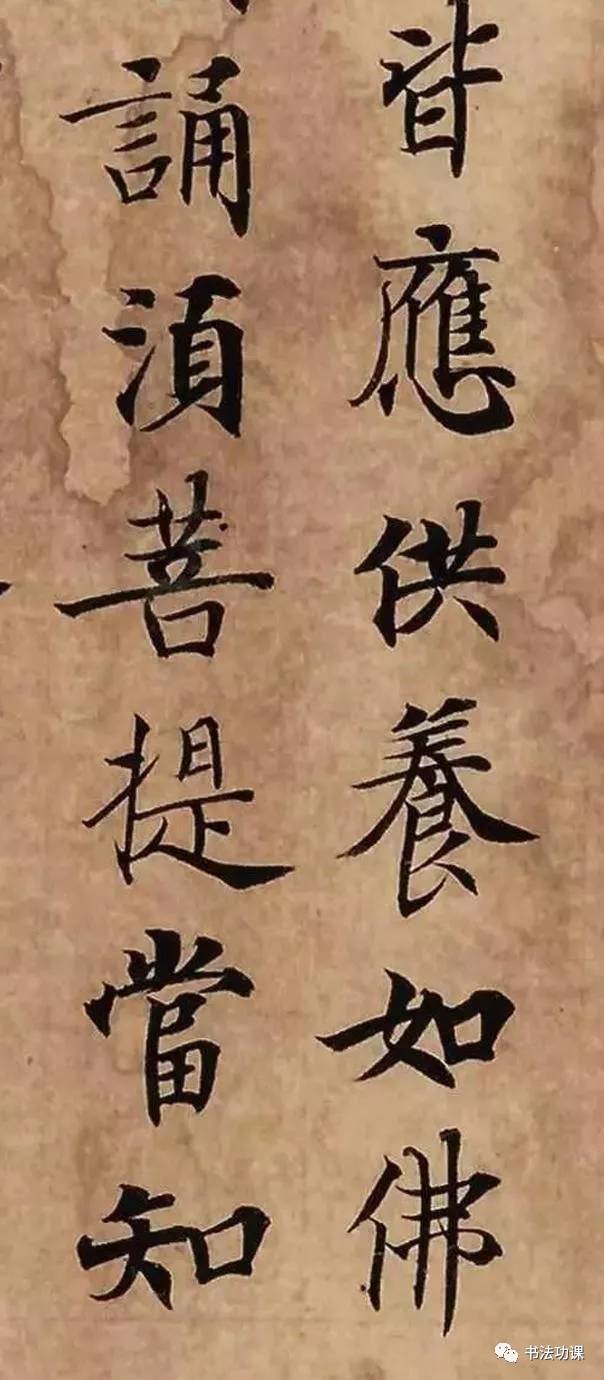 皆應供養如佛
誦須菩提當知
书法功课